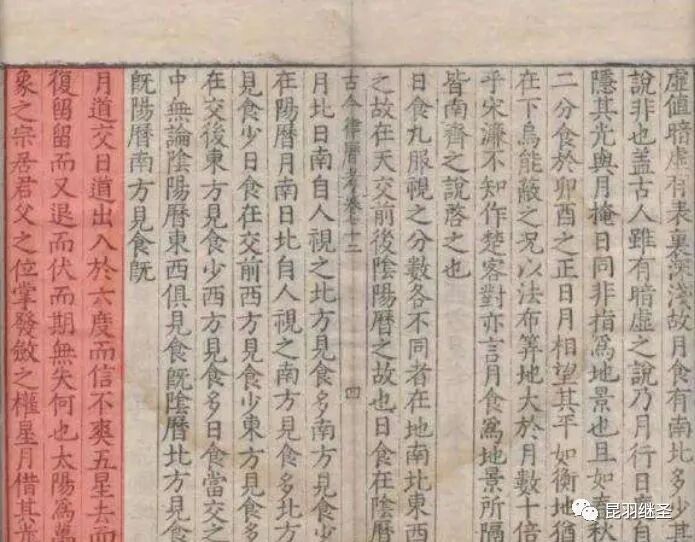 虛值暗虛有表裏深淺故月食有南北多少其
說非也盖古人雖有暗虛之說乃月行日自
隱其光與月掩日同非指爲地景也且如春秋
二分食於卯酉之正日月相望其平如衡地猶
在下烏能蔽之况以法布算地大於月數十倍
乎宋濂不知作楚客對亦言月食爲地景所隔
皆南齊之說啓之也
日食九服視之分數各不同者在地南北東西
之故在天交前後陰陽曆之故也日食在陰曆
古今律曆考卷七十二 四
月北日南自人視之北方見食多南方見食
在陽曆月南日北自人視之南方見食多北方
見食少日食在交前西方見食少東方見食多
在交後東方見食少西方見食多日食當交之
中無論陰陽曆東西俱見食旣陰曆北方見食
旣陽曆南方見食旣
月道交日道出入於六度而信不爽五星去而
復留留而又退而伏而期無失何也太陽爲萬
象之宗居君父之位掌發斂之權星月借其光
昆羽继圣